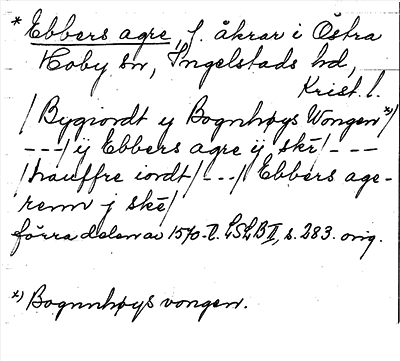 * Ebbers agre, f. åkrar i Östra
Hoby sn, Ingelstads hd,
Krist. l.
/Bygiordt y Bognhøys Wongen x)/
---/ij Ebbers agre ij skē/---
/hauffre iordt/---/Ebbers age-
renn j skē/
förra delen av 1570-t. LSLB II, s. 283. orig.
x) Bognnhøys vongen.